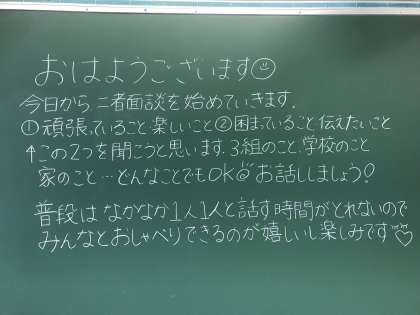 おはようございます☺
今日から、二者面談を始めていきます。
①頑張っていること・楽しいこと②困まっていること、伝えたいこと
↑この2つを聞こうと思います。3組のこと、学校のこと
家のこと…どんなことでもOK☺お話ししましょう?
普段はなかなか1人1人と話す時間がとれないので
みんなとおしゃべりできるのが嬉しいし楽しみです♡